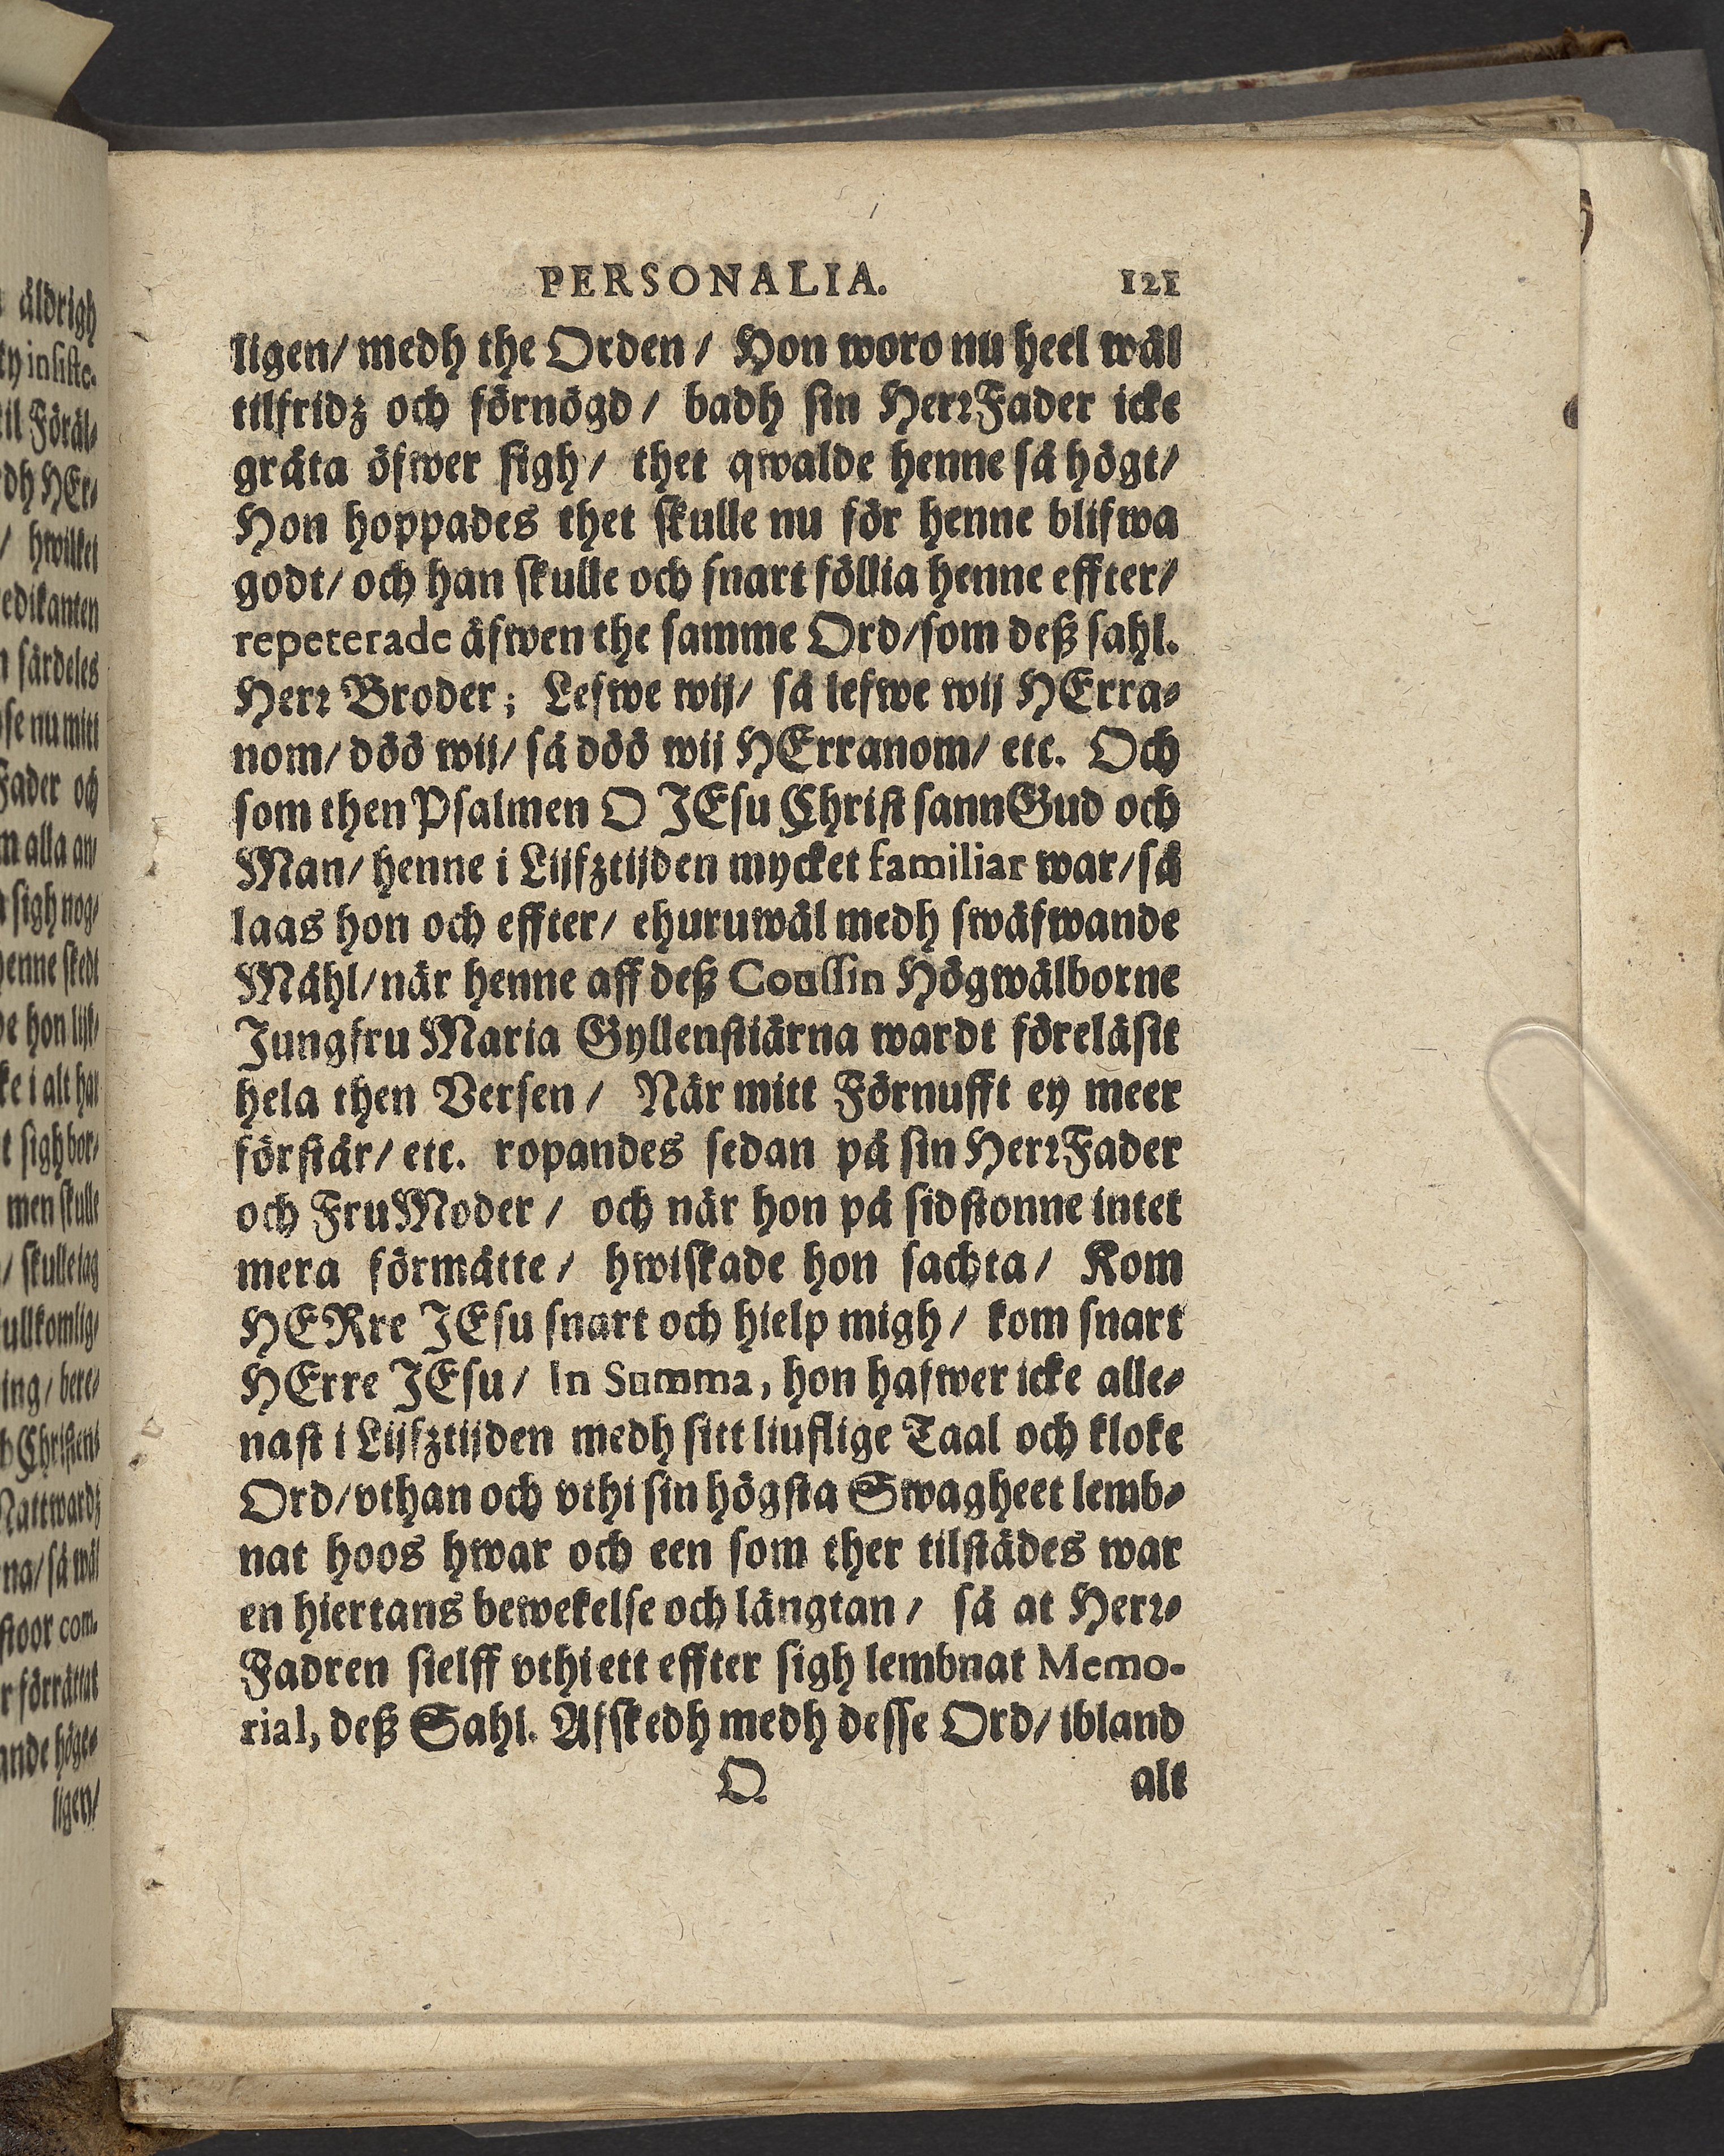 PERSONALIA. 121
ligen/ medh the Orden/ Hon woro nu heel wäl
tilfridz och förnögd/ badh sin HerrFader icke
gråta öfwer sigh/ thet qwalde henne så högt/
Hon hoppades thet skulle nu för henne blifwa
godt/ och han skulle och snart föllia henne effter/
repeterade äfwen the samme Ord/som deß sahl.
Herr Broder; Lefwe wij/ så lefwe wij HErra-
nom/ döö wij/ så döö wij HErranom/ etc. Och
som then Psalmen O JEsu Christ sannGud och
Man/ henne i Lijfztijden mycket familiar war/så
laas hon och effter/ ehuruwäl medh swäfwande
Mähl/när henne aff deß Coussin Högwälborne
Jungfru Maria Gyllenstiärna wardt föreläsit
hela then Versen/ När mitt Förnufft ey meer
förstår/ etc. ropandes sedan på sin HerrFader
och FruModer/ och när hon på sidstonne intet
mera förmåtte/ hwiskade hon sachta/ Kom
HERre JEsu snart och hielp migh/ kom snart
HErre JEsu/ In Summa, hon hafwer icke alle-
nast i Lijfztijden medh sitt liuflige Taal och kloke
Ord/vthan och vthi sin högsta Swagheet lemb-
nat hoos hwar och een som ther tilstädes war
en hiertans bewekelse och längtan/ så at Herr-
Fadren sielff vthi ett effter sigh lembnat Memo-
rial, deß Sahl. Afskedh medh desse Ord/ ibland
Q alt
äldrigh
insiste-
til Föräl-
dh HEr-
/ hwilket
edikanten
särdeles
se nu mitt
Fader och
m alla an/
sigh nog/
henne skedt
hon lijk/
ke i alt har
t sigh bor/
men skulle
/ skulle iag
fullkomlig/
ing/ bere/
Christens
Nattwardz
na/ så wäl
stoor com-
r förrättat
ande höge-
ligen/